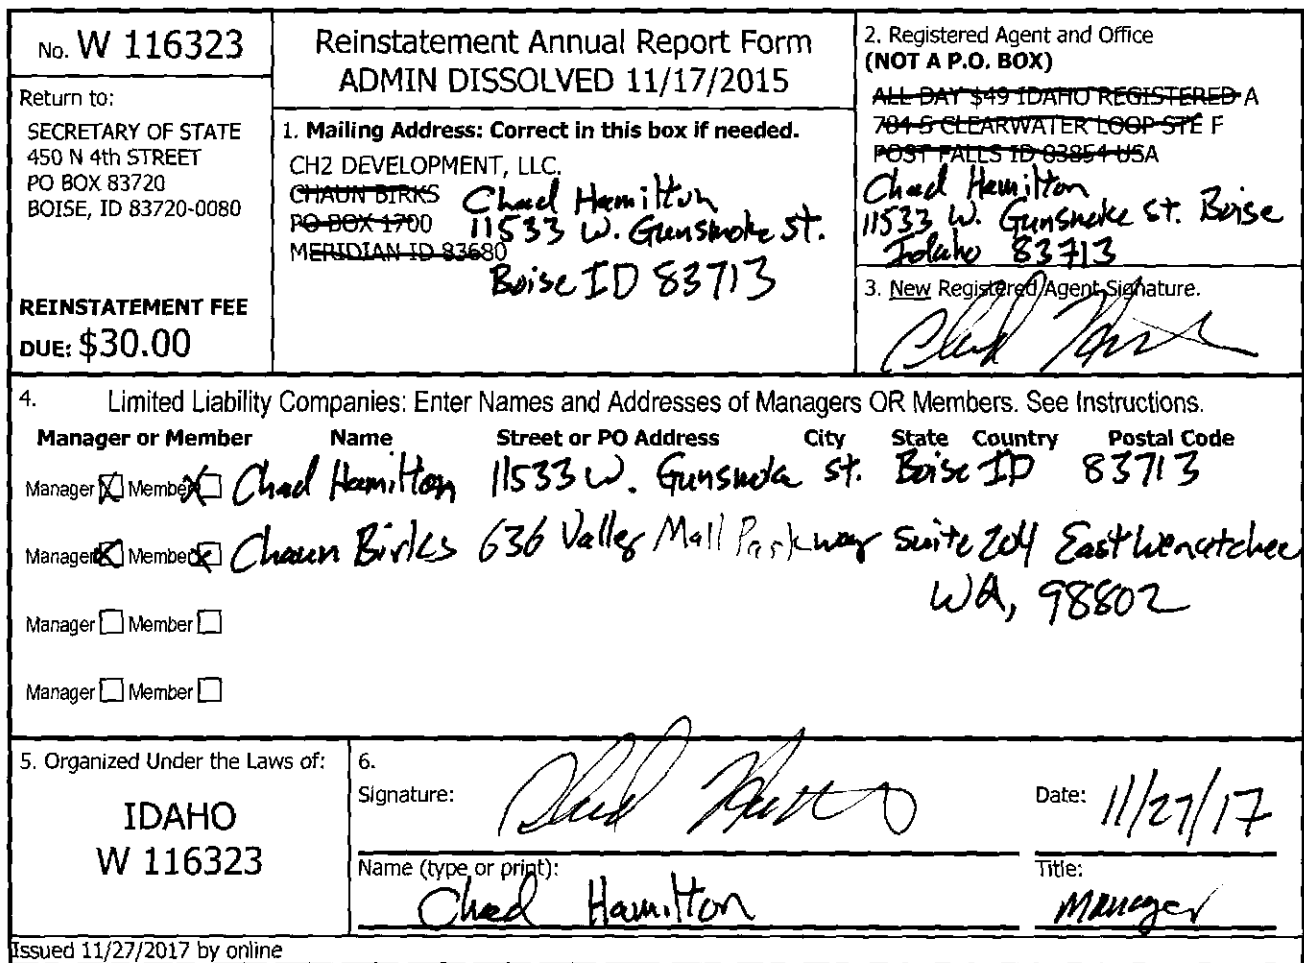 No. W 116323
Return to:
SECRETARY OF STATE
450 N 4th STREET
PO BOX 83720
BOISE, ID 83720-0080
REINSTATEMENT FEE
DUE: $30.00
Reinstatement Annual Report Form
ADMIN DISSOLVED 11/17/2015
1. Mailing Address: Correct in this box if needed.
CH2 DEVELOPMENT, LLC.
CHAUN BIRKS
PO BOX 1700
MERIDIAN ID 83680
Chad Hamilton
11533 W. Gunsmoke St.
Boise ID 83713
2. Registered Agent and Office
(NOT A P.O. BOX)
ALL DAY $49 IDAHO REGISTERED A
784 S CLEARWATER LOOP STE F
POST FALLS ID 83854 USA
Chad Hamilton
11533 W. Gunsmoke St. Boise
Idaho 83713
3. New Registered Agent Signature.
4. Limited Liability Companies: Enter Names and Addresses of Managers OR Members. See Instructions.
Manager or Member Name Street or PO Address City State Country Postal Code
Manager Member Chad Hamilton 11533 W. Gunsmoke St. Boise ID 83713
Manager Member Chaun Birks 636 Valley Mall Parkway Suite 204 East Wenatchee
WA, 98802
Manager Member
Manager Member
5. Organized Under the Laws of:
IDAHO
W 116323
6.
Signature:
Date: 11/27/17
Name (type or print):
Chad Hamilton
Title:
Manager
Issued 11/27/2017 by online